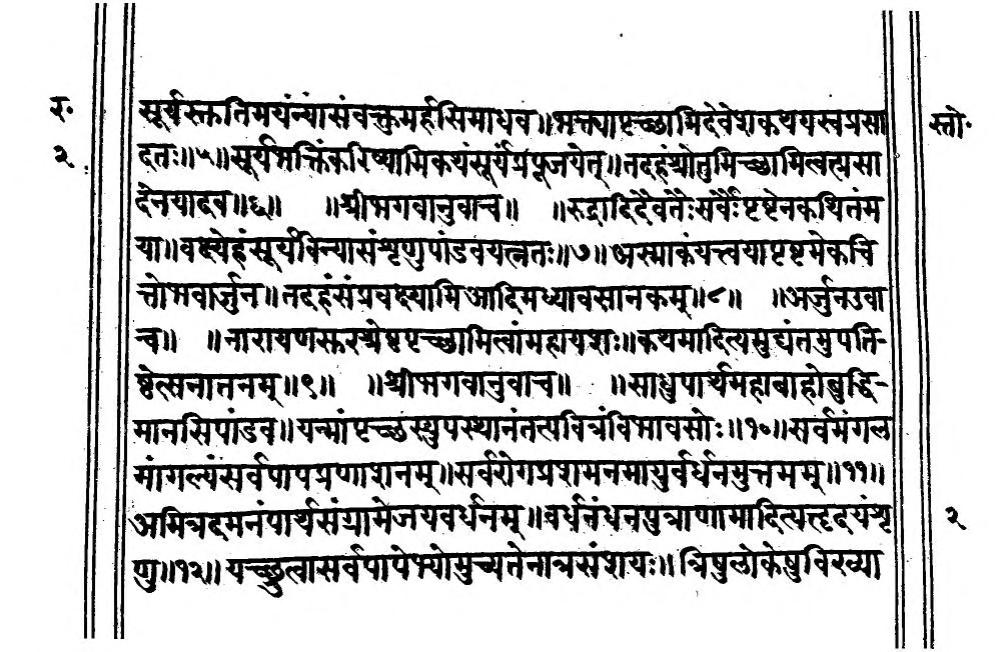 सूर्यस्कतिमयंन्यांसंवक्तुमर्हसिमाधव॥भक्त्यापृच्छामिदेवेशकथयस्वप्रसा
दतः॥५॥सूर्यभक्तिंकरिष्यामिकथंसूर्यंप्रपूजयेत्॥तदहंश्रोतुमिच्छामित्वत्प्रसा
देनयादव॥६॥ ॥श्रीभगवानुवाच॥ ॥रुद्रादिदैवतैःसर्वैःपृष्टेनकथितंम
या॥वक्ष्येहंसूर्यविन्यासंशृणुपांडवयत्नतः॥७॥अस्माकंयत्त्वयापृष्टमेकचि
त्तोभवार्जुन॥तदहंसंप्रवक्ष्यामिआदिमध्यावसानकम्॥८॥ ॥अर्जुनउवा
च॥ ॥नारायणसुरश्रेष्ठपृच्छामित्वांमहायशः॥कथमादित्यमुद्यंतमुपति-
ष्ठेत्सनातनम्॥९॥ ॥श्रीभगवानुवाच॥ ॥साधुपार्थमहाबाहोबुद्धि-
मानसिपांडव॥यन्मांपृच्छस्युपस्थानंतत्पवित्रंविभावसोः॥१०॥सर्वमंगल
मांगल्यंसर्वपापप्रणाशनम्॥सर्वरोगप्रशमनमायुर्वर्धनमुत्तमम्॥११॥
अमित्रदमनंपार्थसंग्रामेजयवर्धनम्॥वर्धनंधनपुत्राणामादित्यहृदयंशृ
णु॥१२॥यच्छ्रुत्वासर्वपापेभ्योमुच्यतेनात्रसंशयः॥त्रिषुलोकेषुविख्या
र॰
२
स्तो॰
२